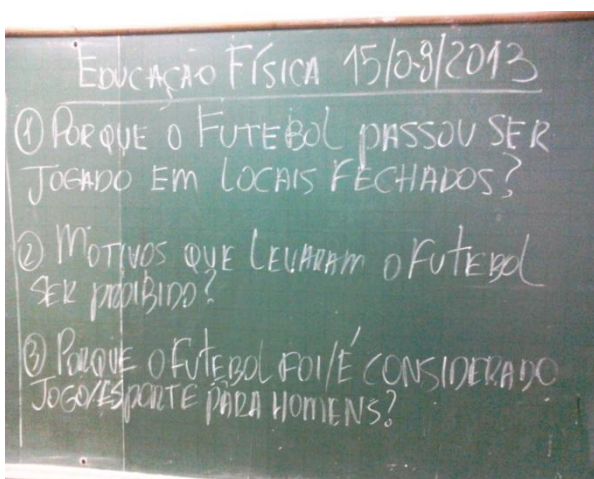 EDUCAÇÃO FÍSICA 15/08/2013
① PORQUE O FUTEBOL PASSOU SER
JOGADO EM LOCAIS FECHADOS?
② MOTIVOS QUE LEVARAM O FUTEBOL
SER PROIBIDO?
③ PORQUE O FUTEBOL FOI/É CONSIDERADO
JOGO/ESPORTE PARA HOMENS?